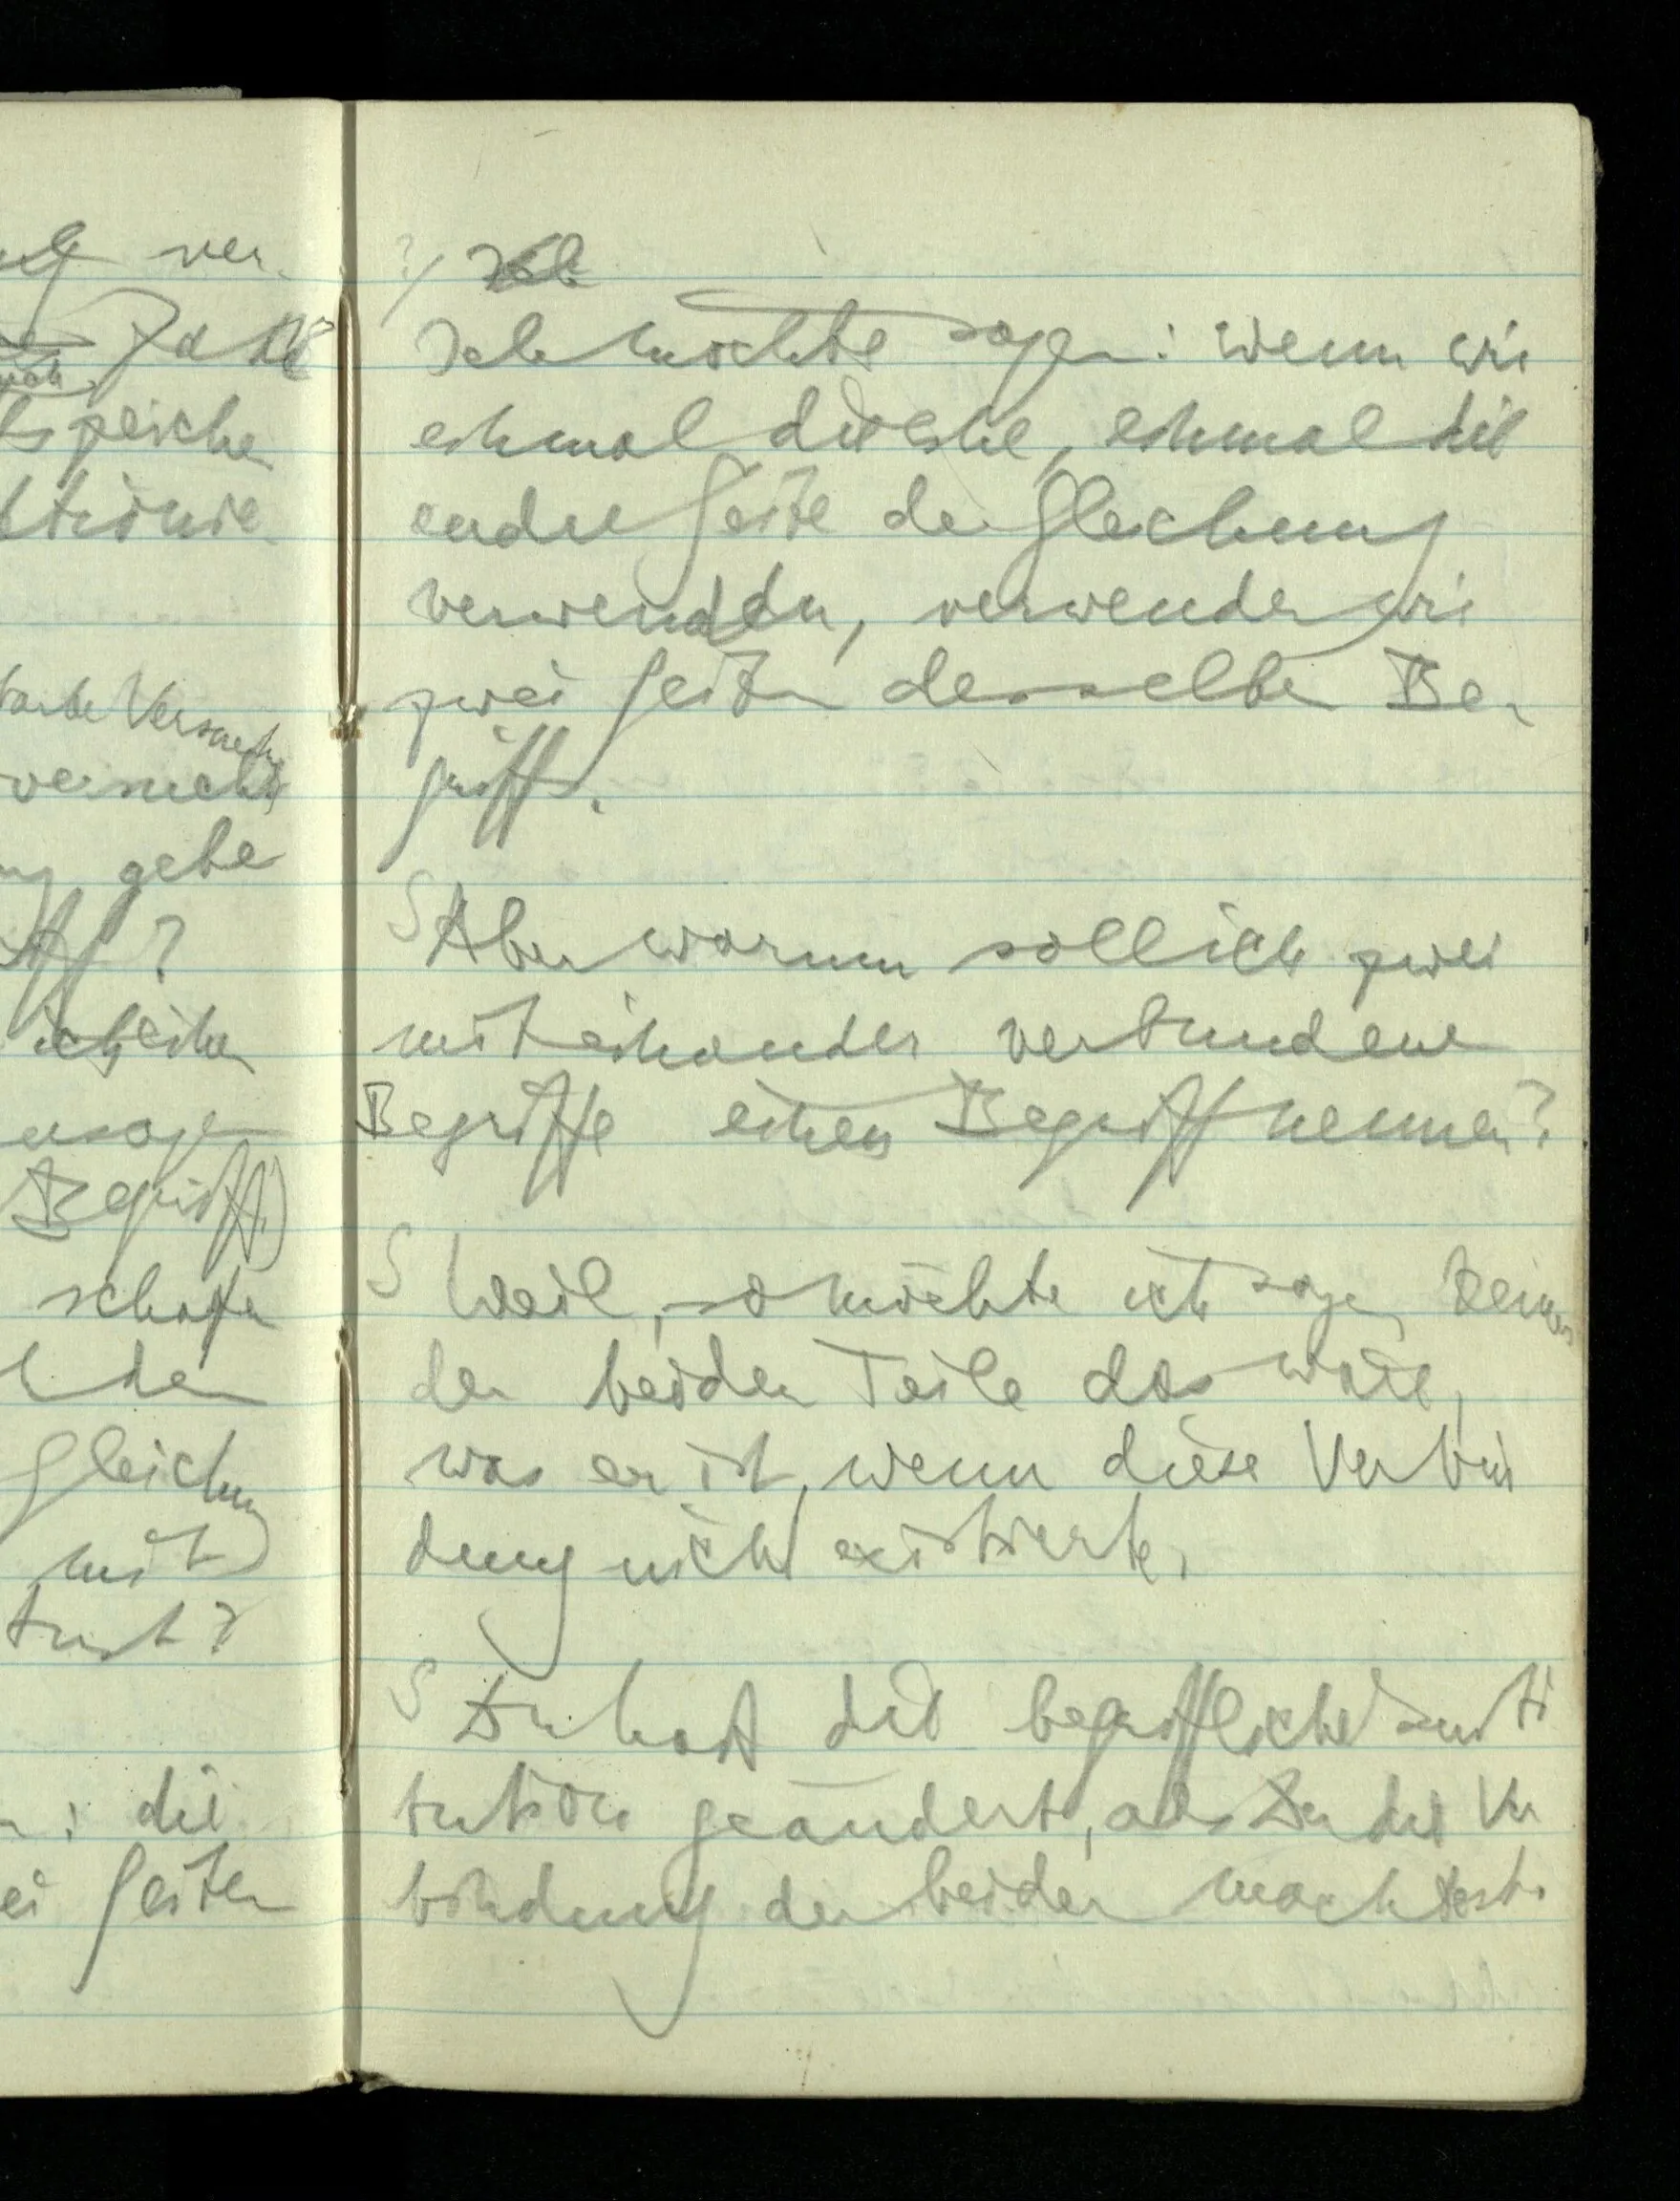 ver-
spreche
versucht
gebe
?
ich einen
Begriff)
schafen
den
Gleichung
mit
tust?
: die
ei Seiten
?/ Ich
Ich möchte sagen: wenn wir
einmal die eine, einmal die
andre Seite der Gleichung
verwenden, verwenden wir
zwei Seiten desselben Be-
griffs.
S Aber warum soll ich zwei
mit einander verbundene
Begriffe einen Begriff nennen?
S Weil, so möchte ich sagen, keiner
der beiden Teile das wäre,
was er ist, wenn diese Verbin
dung nicht existierte.
S Du hast die begriffliche
geändert, als Du die Ver
bindung der beiden machtest.